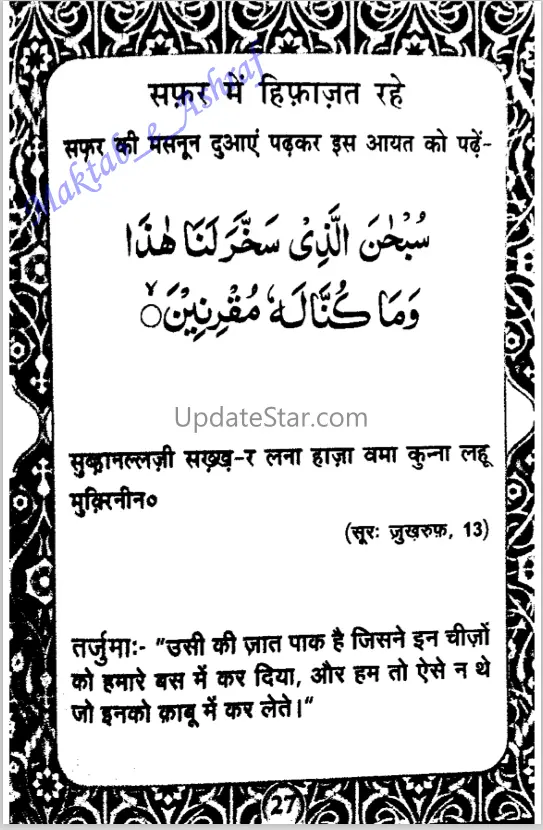 सफ़र में हिफ़ाज़त रहे
Maktab_e_Ashraf
सफ़र की मसनून दुआएं पढ़कर इस आयत को पढ़ें-
سُبْحٰنَ الَّذِیْ سَخَّرَ لَنَا هٰذَا
وَمَا كُنَّا لَهٗ مُقْرِنِیْنَ ۙ○
UpdateStar.com
सुब्हानल्लज़ी सख़्ख़-र लना हाज़ा वमा कुन्ना लहू
मुक़्रिनीन०
(सूरः जुख़रुफ़, 13)
तर्जुमाः- "उसी की ज़ात पाक है जिसने इन चीज़ों
को हमारे बस में कर दिया, और हम तो ऐसे न थे
जो इनको क़ाबू में कर लेते।"
27